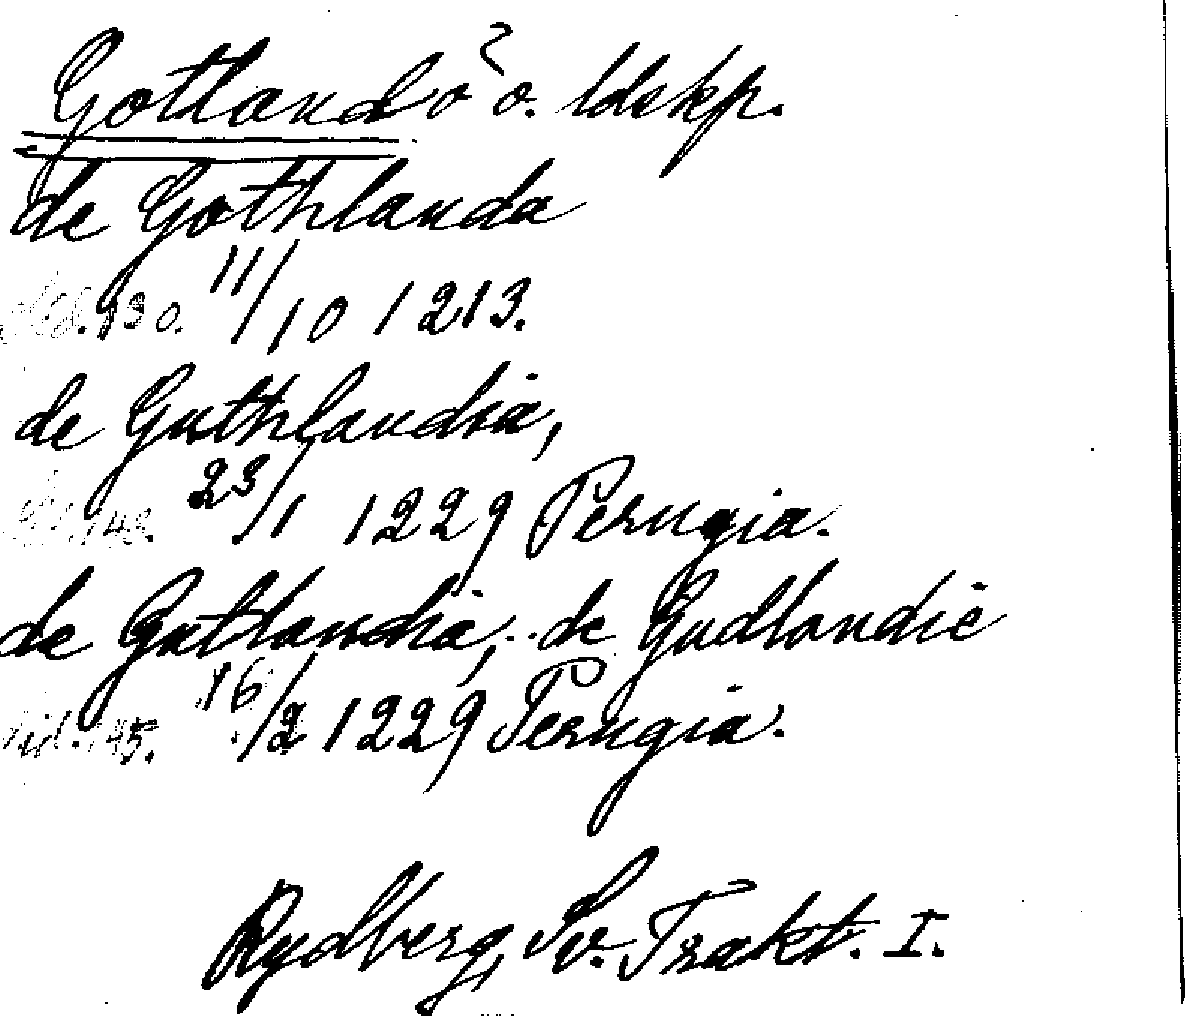 Gotland ö o. ldskp.
de Gothlanda
sid. 130. 11/10 1213.
de Guthlandia,
sid. 143. 23/1 1229 Perugia.
de Gutlandia, de Gudlandie
sid. 145. 16/2 1229 Perugia.
Rydberg, Sv. Trakt. I.